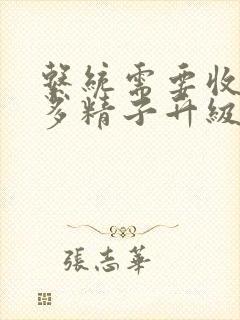 繫統需要收
多精子升級
張志華